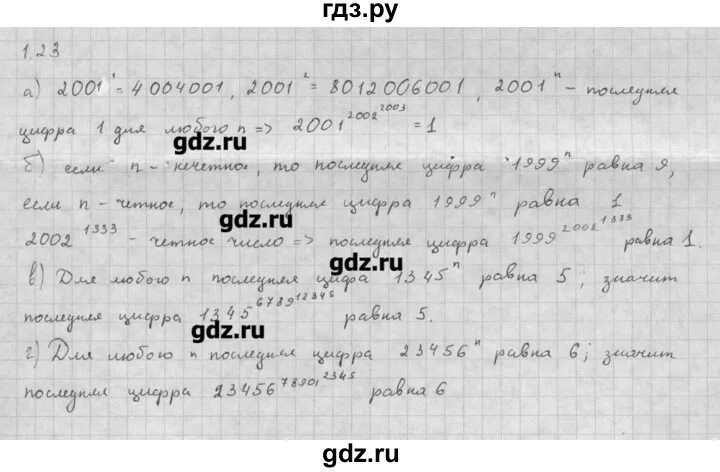 гдз.ру
1.23
а) 2001¹ = 4 004001, 2001² = 8012006001, 2001ⁿ – последняя
цифра 1 для любого n => 2001^2002^2003 = 1
gdz.ru
б) если n – нечетное, то последняя цифра 1999ⁿ равна 9,
если n – четное, то последняя цифра 1999ⁿ равна 1
gdz.ru
2002^1333 – четное число => последняя цифра 1999^2002^1333 равна 1.
gdz.ru
в) Для любого n последняя цифра 1345ⁿ равна 5; значит
последняя цифра 1345^6789^12345 равна 5.
gdz.ru
г) Для любого n последняя цифра 23456ⁿ равна 6; значит
последняя цифра 23456^78901^2345 равна 6
gdz.ru